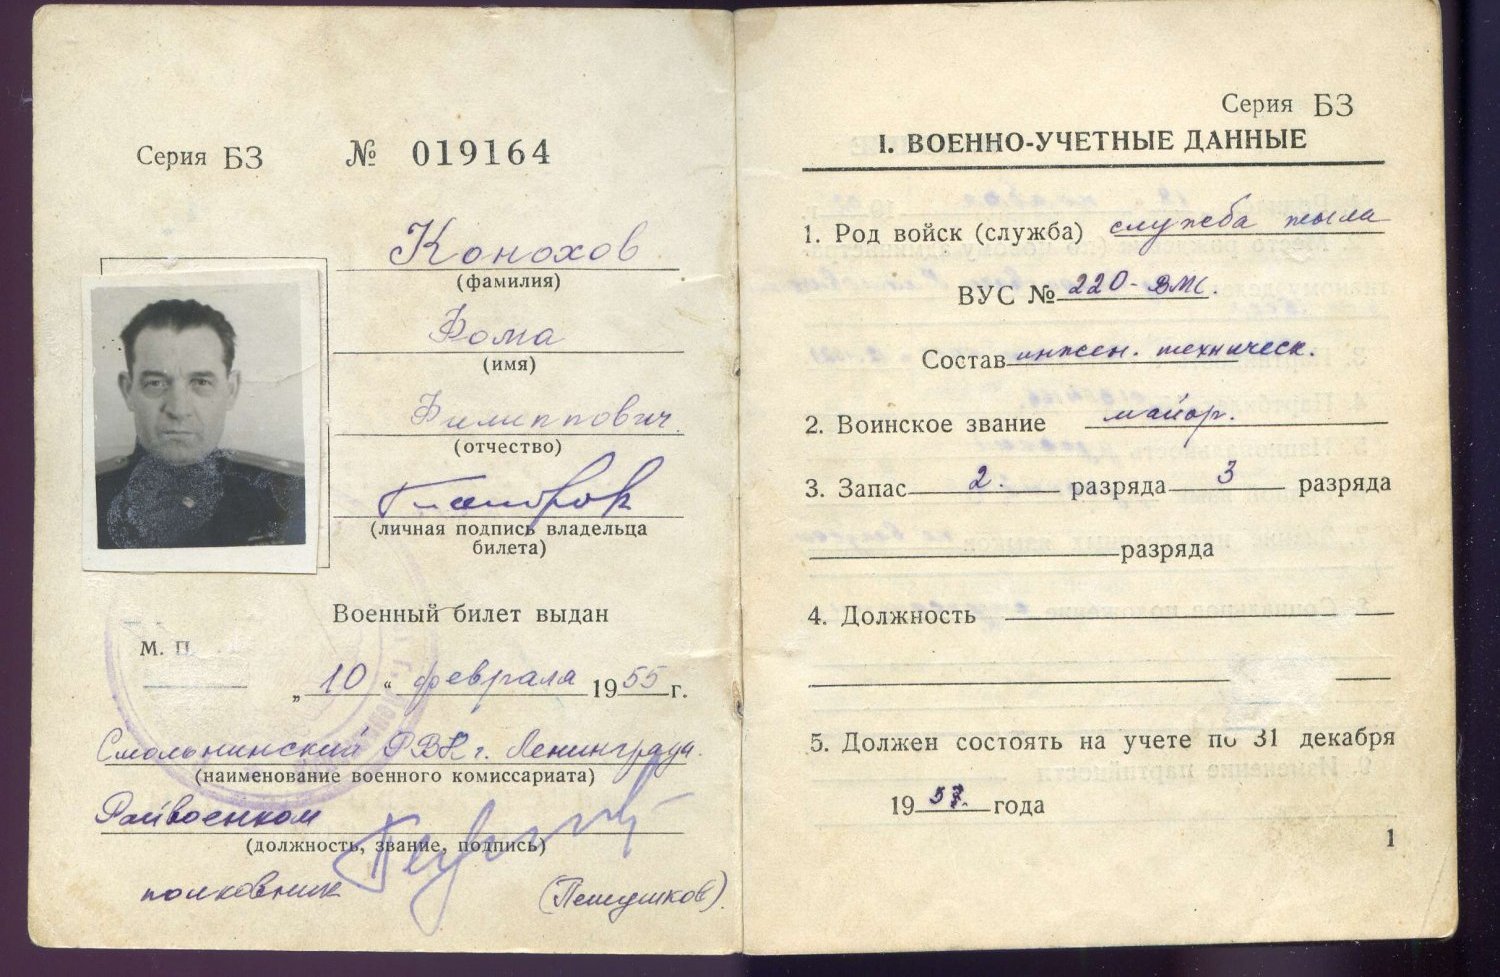 Серия БЗ № 019164
Конохов
(фамилия)
Фома
(имя)
Филиппович
(отчество)
(личная подпись владельца
билета)
Военный билет выдан
М. П.
„ 10 “ февраля 1955 г.
Смольнинский РВК г. Ленинграда.
(наименование военного комиссариата)
Райвоенком
(должность, звание, подпись)
полковник
Серия БЗ
I. ВОЕННО-УЧЕТНЫЕ ДАННЫЕ
1. Род войск (служба) служба тыла
ВУС № 220-ВМС.
Состав инжен. техническ.
2. Воинское звание майор.
3. Запас 2. разряда 3 разряда
разряда
4. Должность
5. Должен состоять на учете по 31 декабря
1957. года
1